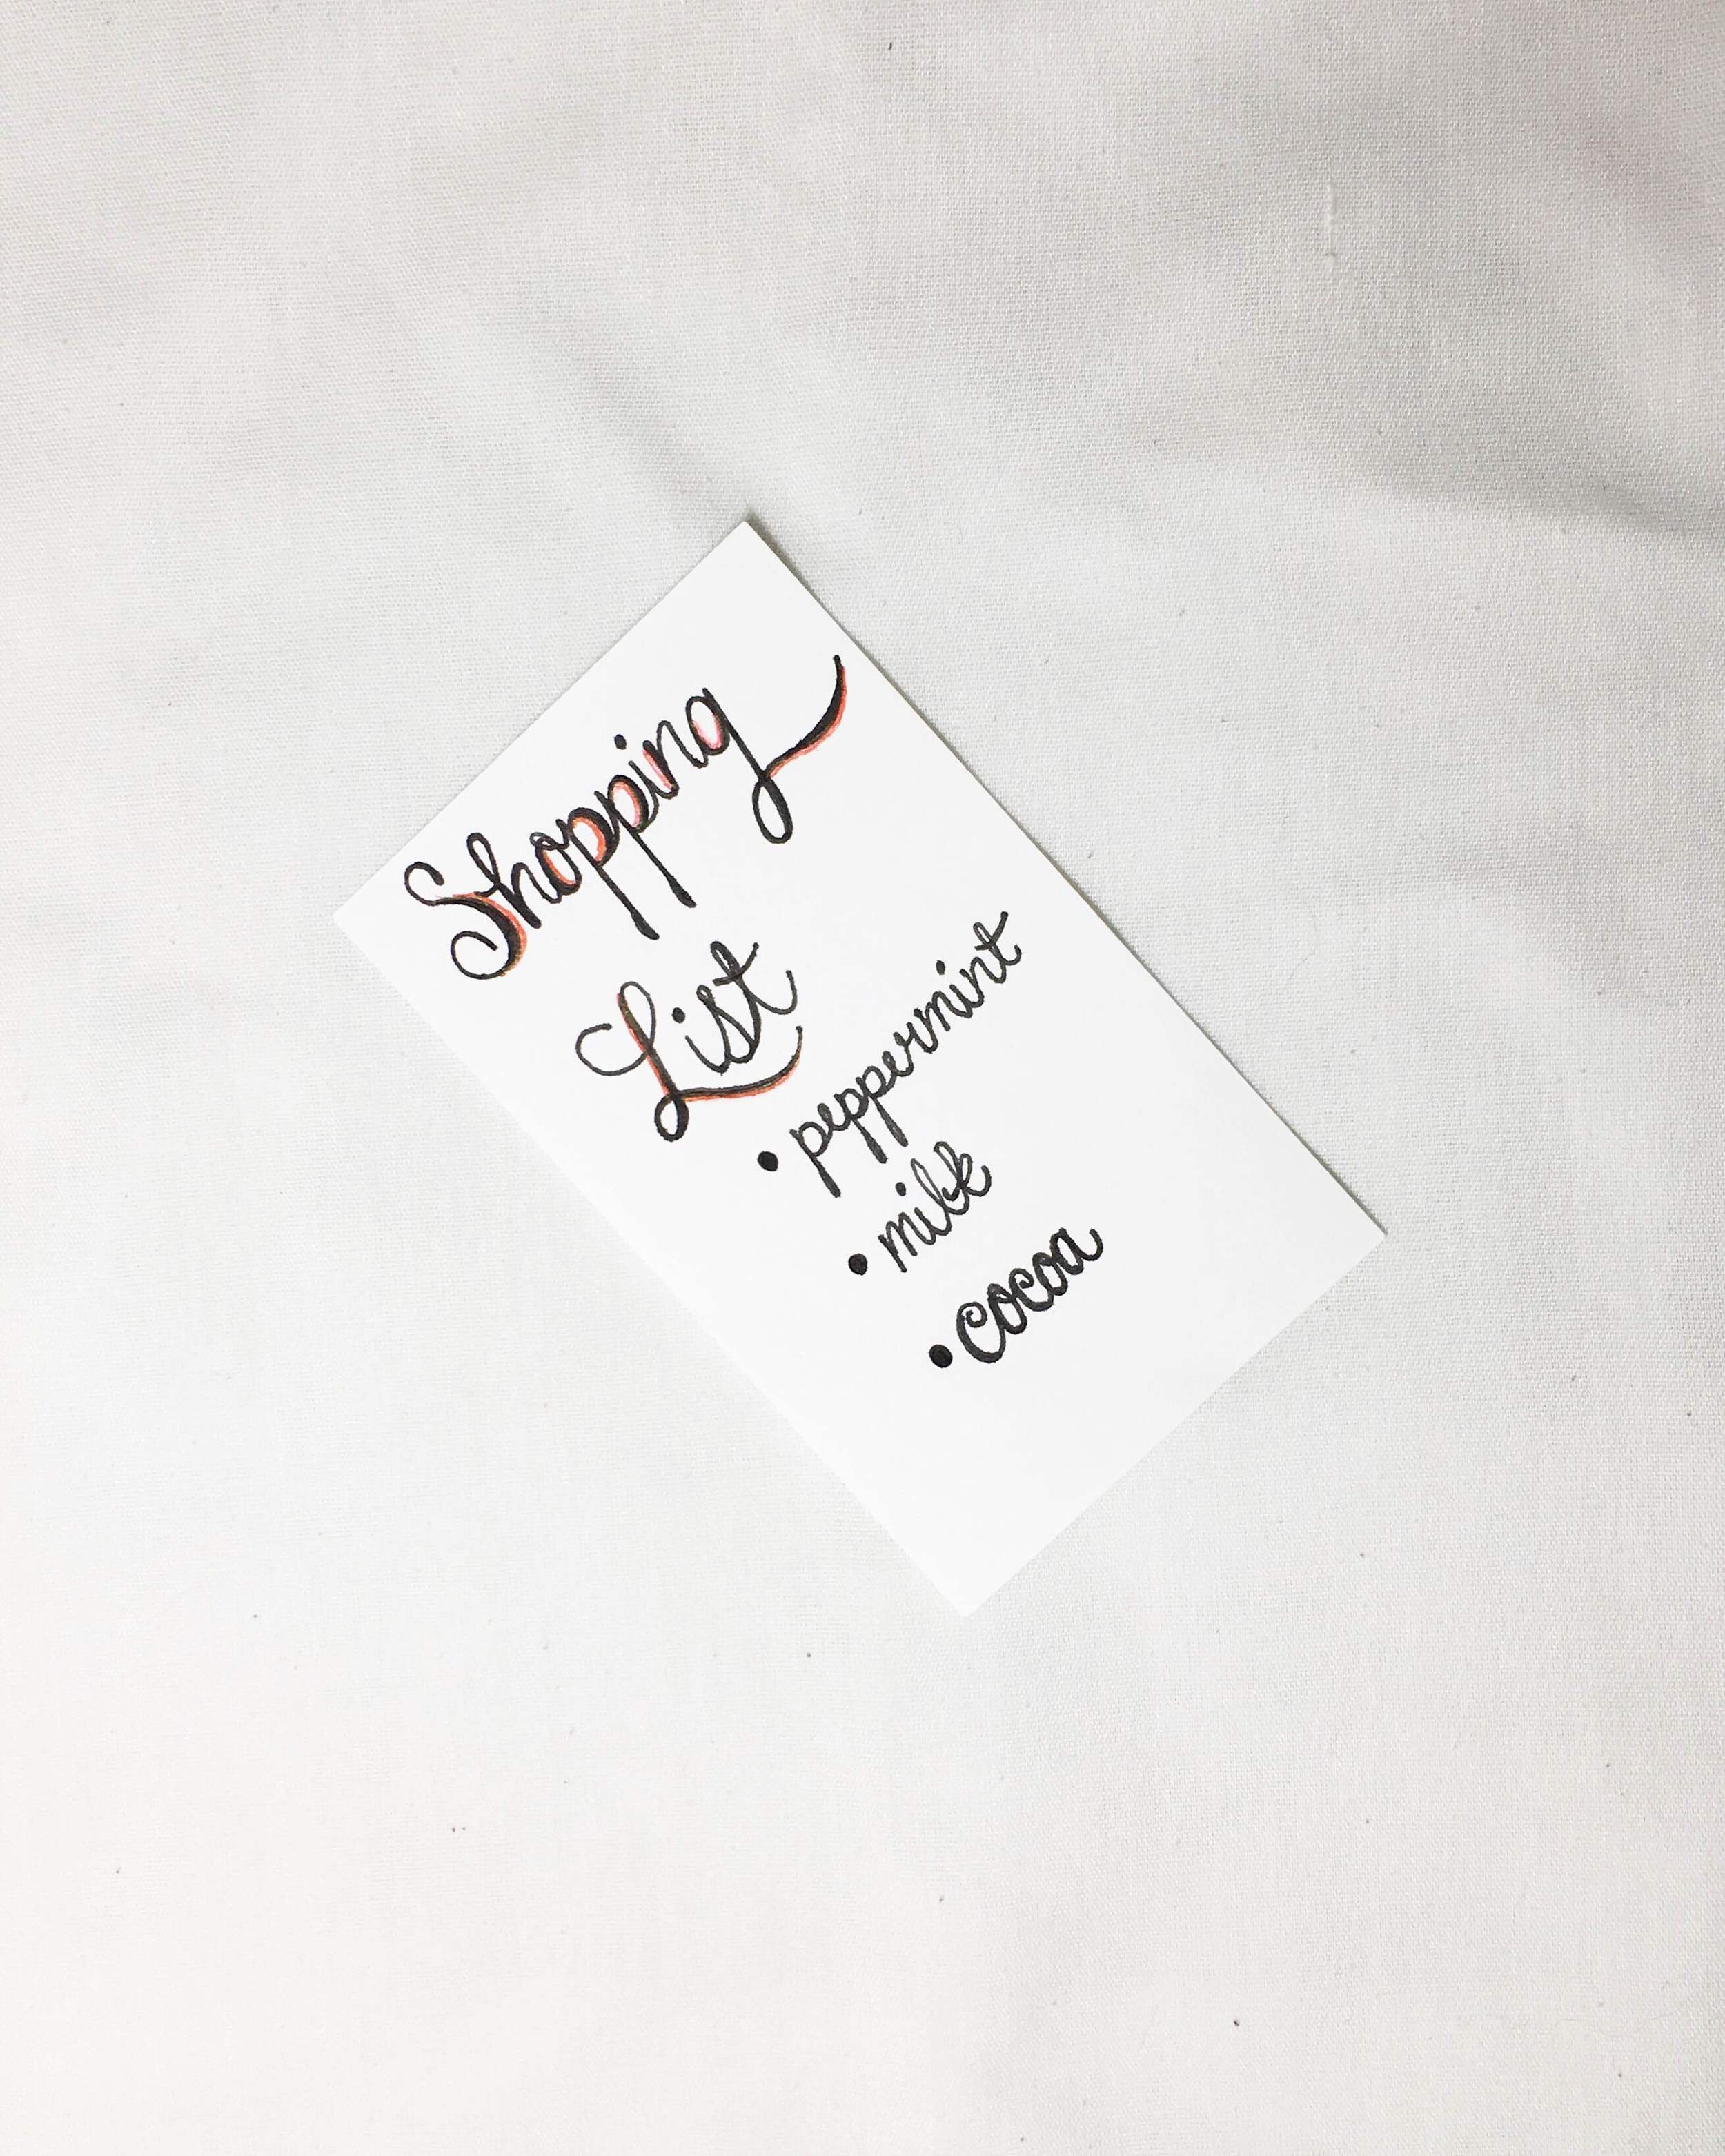 Shopping
List
• peppermint
• milk
• cocoa